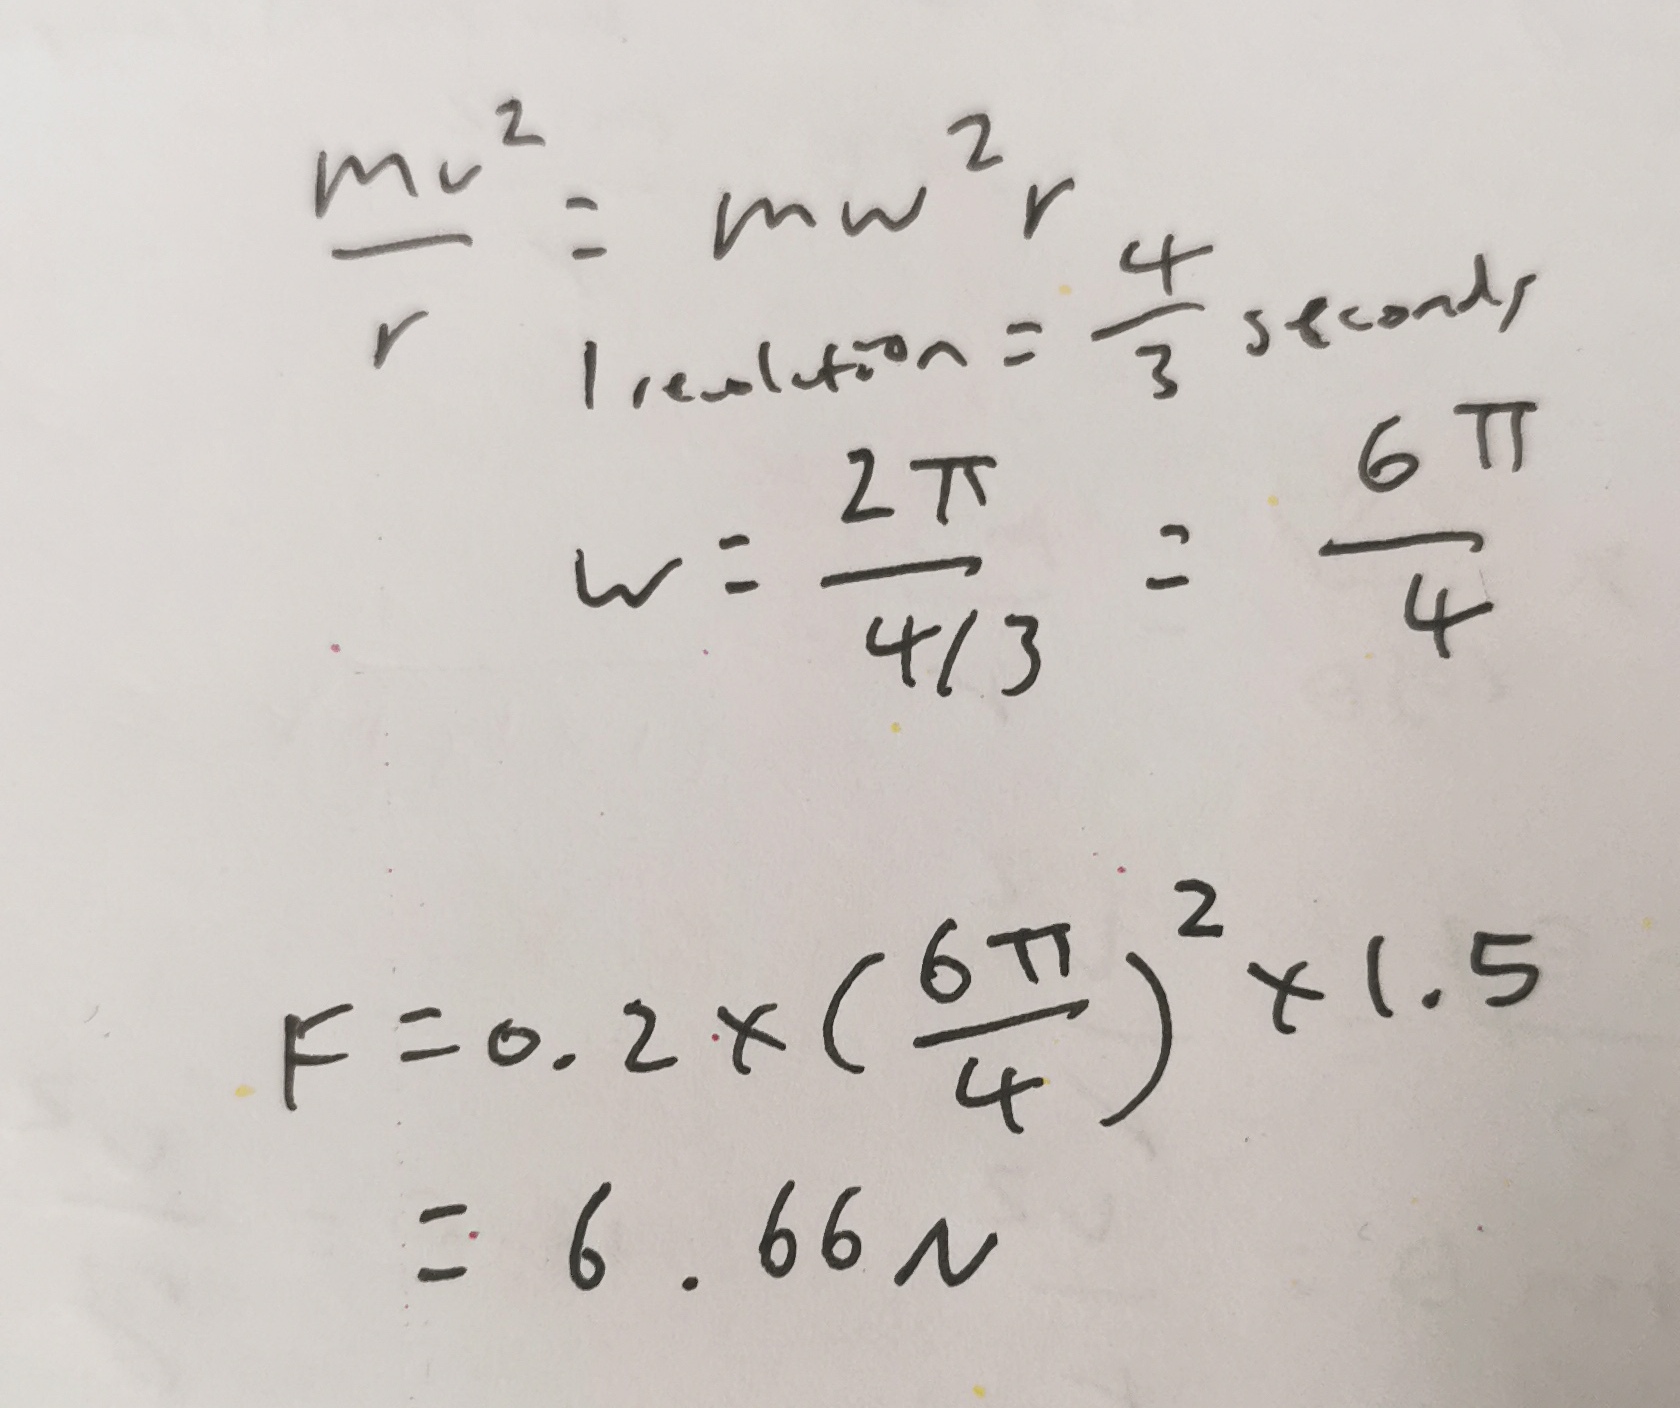 mv²/r = mw²r
1 revolution = 4/3 seconds
w = 2π/(4/3) = 6π/4
F = 0.2 × (6π/4)² × 1.5
= 6.66 N